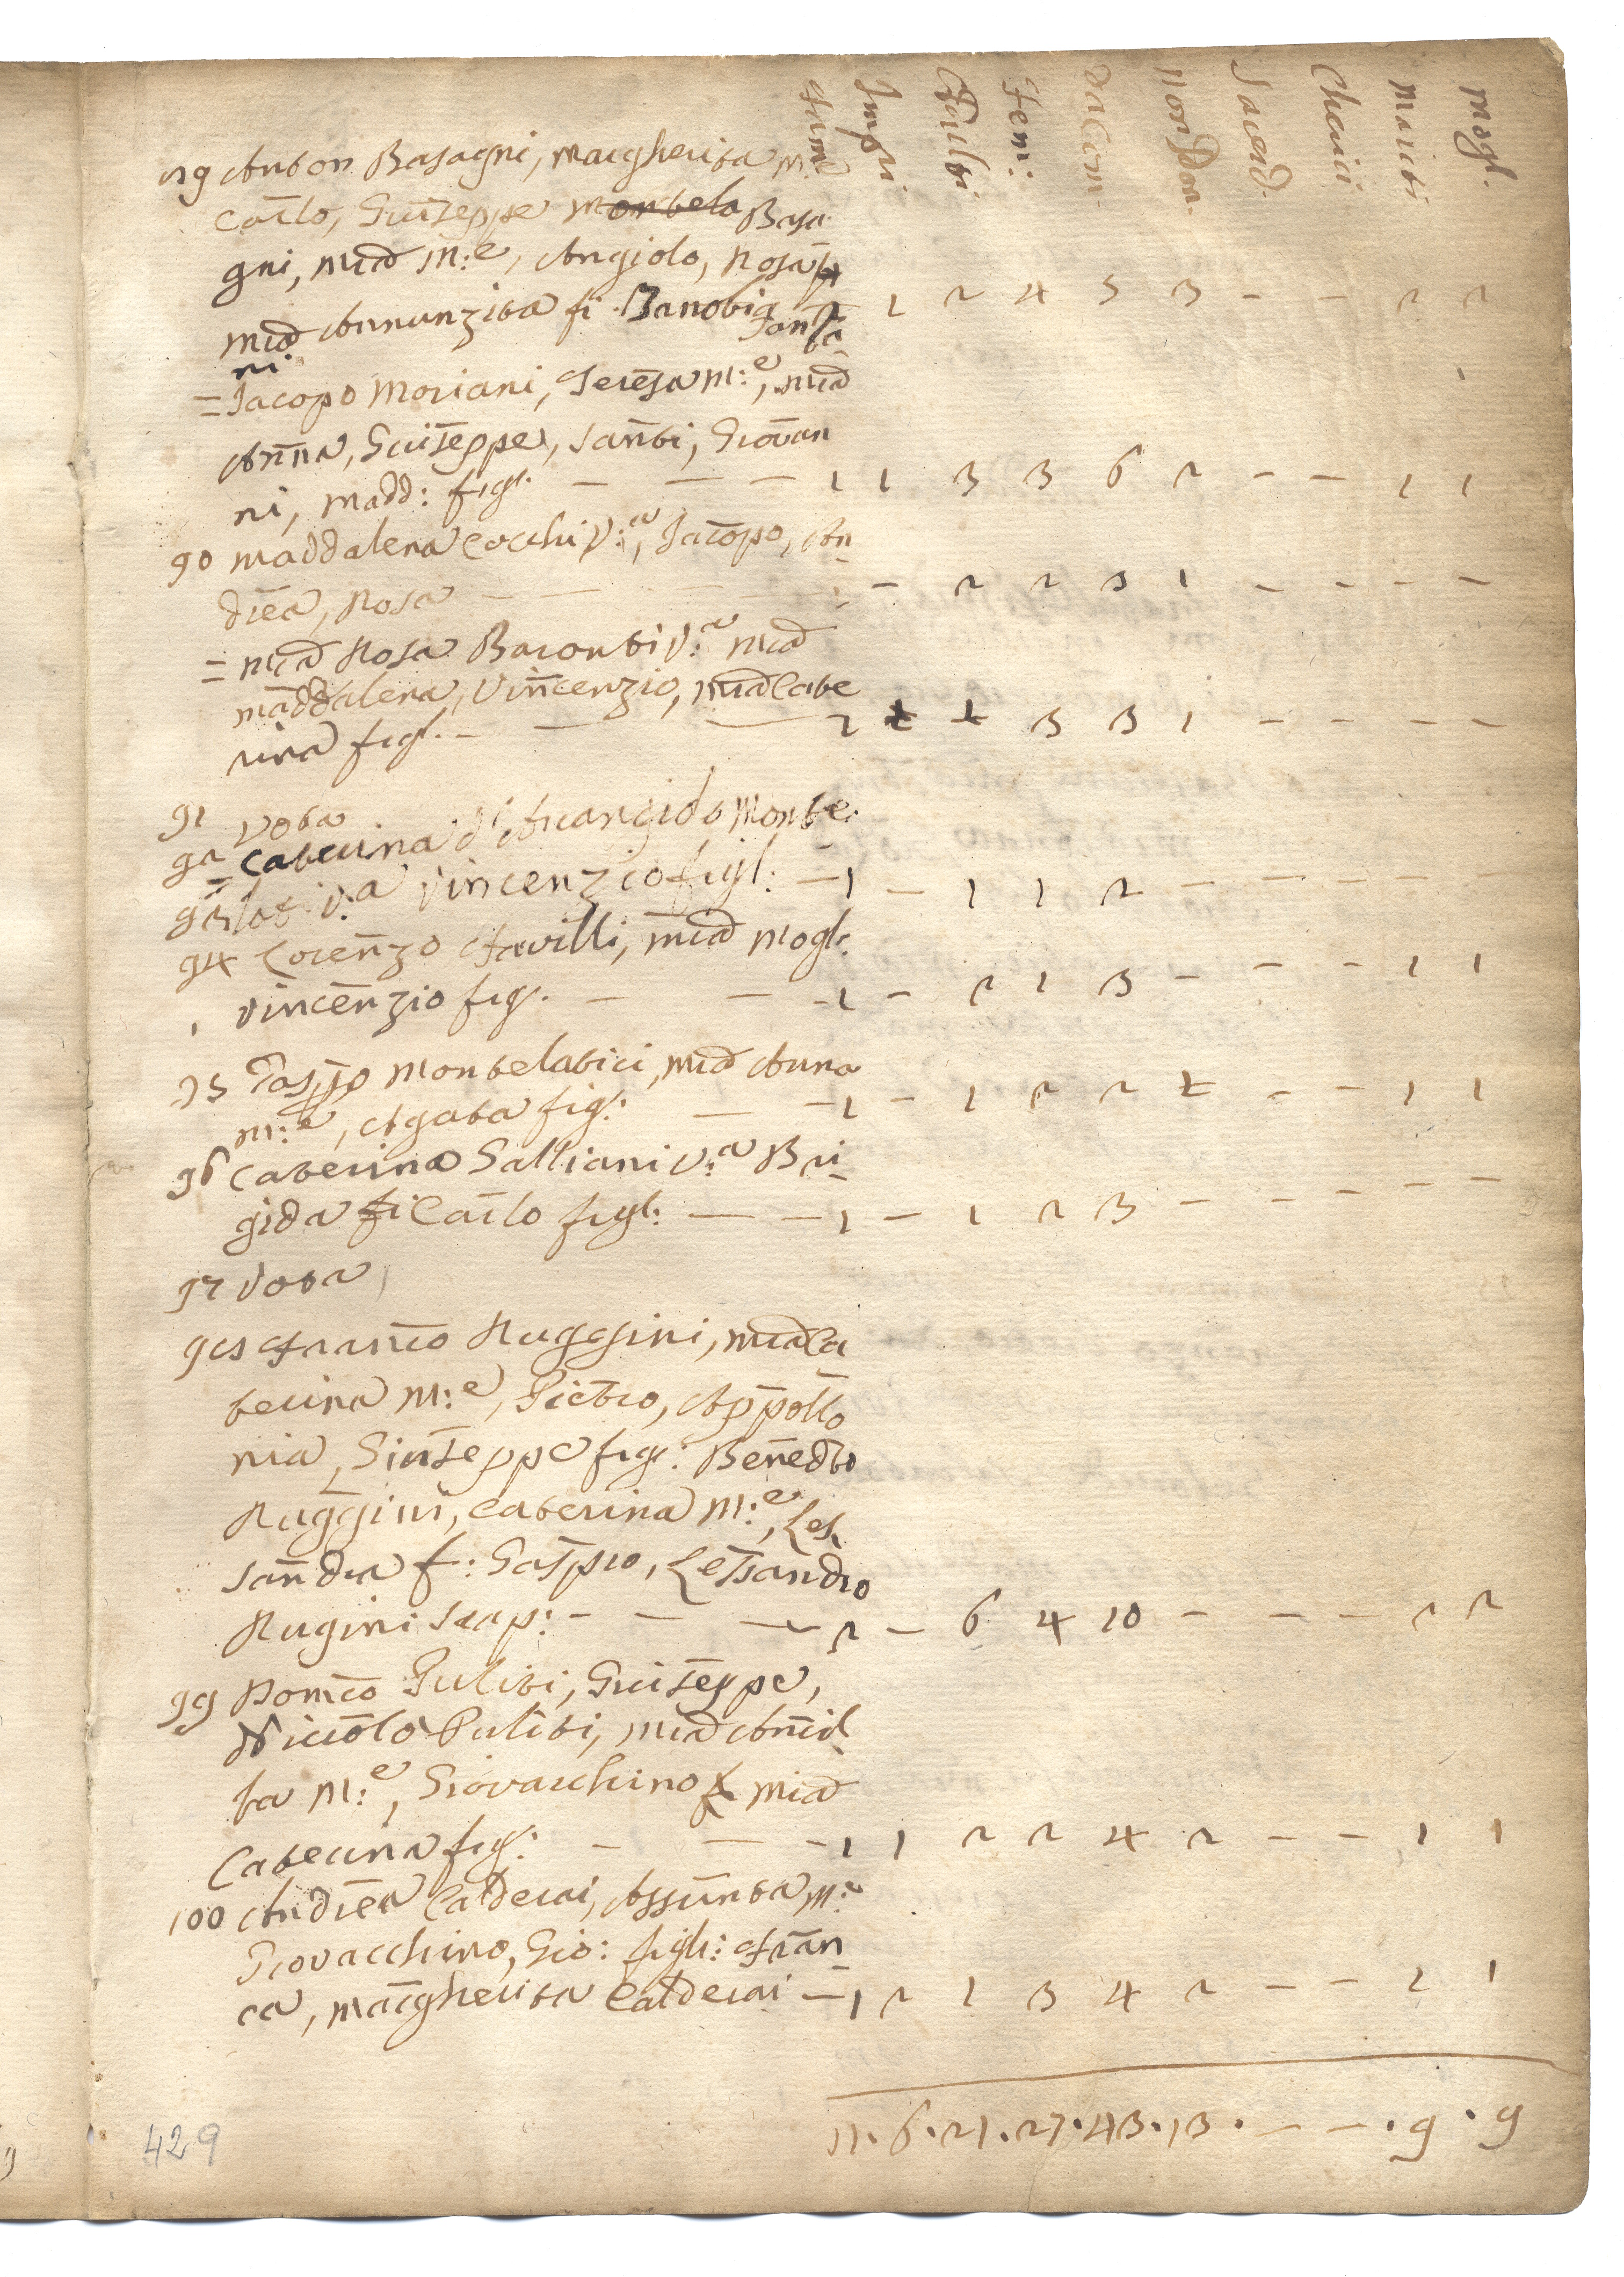 Fam: Impu: Adulti Fem: Da Com Non Com. Sacerd. Cherici Mariti Mogl.
89 Anton Basagni, Margherita M:e
Carlo, Giuseppe Montela Basa
gni, M:a D M:e, Angiolo, Rosa
M:a D Annunziata fi Zanobi Santi
ni 1 2 4 5 3 - - 2 2
= Jacopo Moriani, Teresa M:e, M:a D
Anna, Giuseppe, Santi, Giovan
ni, Madd: figl. - - - 1 1 3 3 6 2 - - 1 1
90 Maddalena Cocchi V:a, Jacopo, An
drea, Rosa - - - 2 2 3 1 - - - -
= M:a D Rosa Baronti V:a M:a D
Maddalena, Vincenzio, M:a D Cate
rina figl. - - - 2 + + 3 3 1 - - - -
91 Vota
92 Caterina d'Arcangiolo Monte
93 = lat: V:a Vincenzio figl: - 1 - 1 1 2 - - - - -
94 Lorenzo Favilli, M:a D Mogl.
Vincenzio fig. - - - 1 - 2 1 3 - - - 1 1
95 Gaspro Montelatici, M:a D Anna
M:e, Agata fig: - - 1 - 1 2 2 + - - 1 1
96 Caterina Galliani V:a Bri
gida fi Carlo figl: - - 1 - 1 2 3 - - - - -
97 Vota
98 Franco Ruggini, M:a D Ca
terina M:e, Pietro, Appollo
nia, Giuseppe figl: Benedto
Ruggini, Caterina M:e, Les
sandra f: Gaspro, Lessandro
Rugini Scap: - - - 2 - 6 4 10 - - - 2 2
99 Domco Puliti, Giuseppe,
Niccolo Puliti, M:a D Annil
ta M:e, Giovacchino f M:a D
Caterina figl: - - - 1 1 2 2 4 2 - - 1 1
100 Andrea Calderai, Assunta M:e
Giovacchino, Gio: figli: Fran
ca, Margherita Calderai - 1 2 1 3 4 2 - - 1 1
11 . 6 . 21 . 27 . 43 . 13 . - - . 9 . 9
429